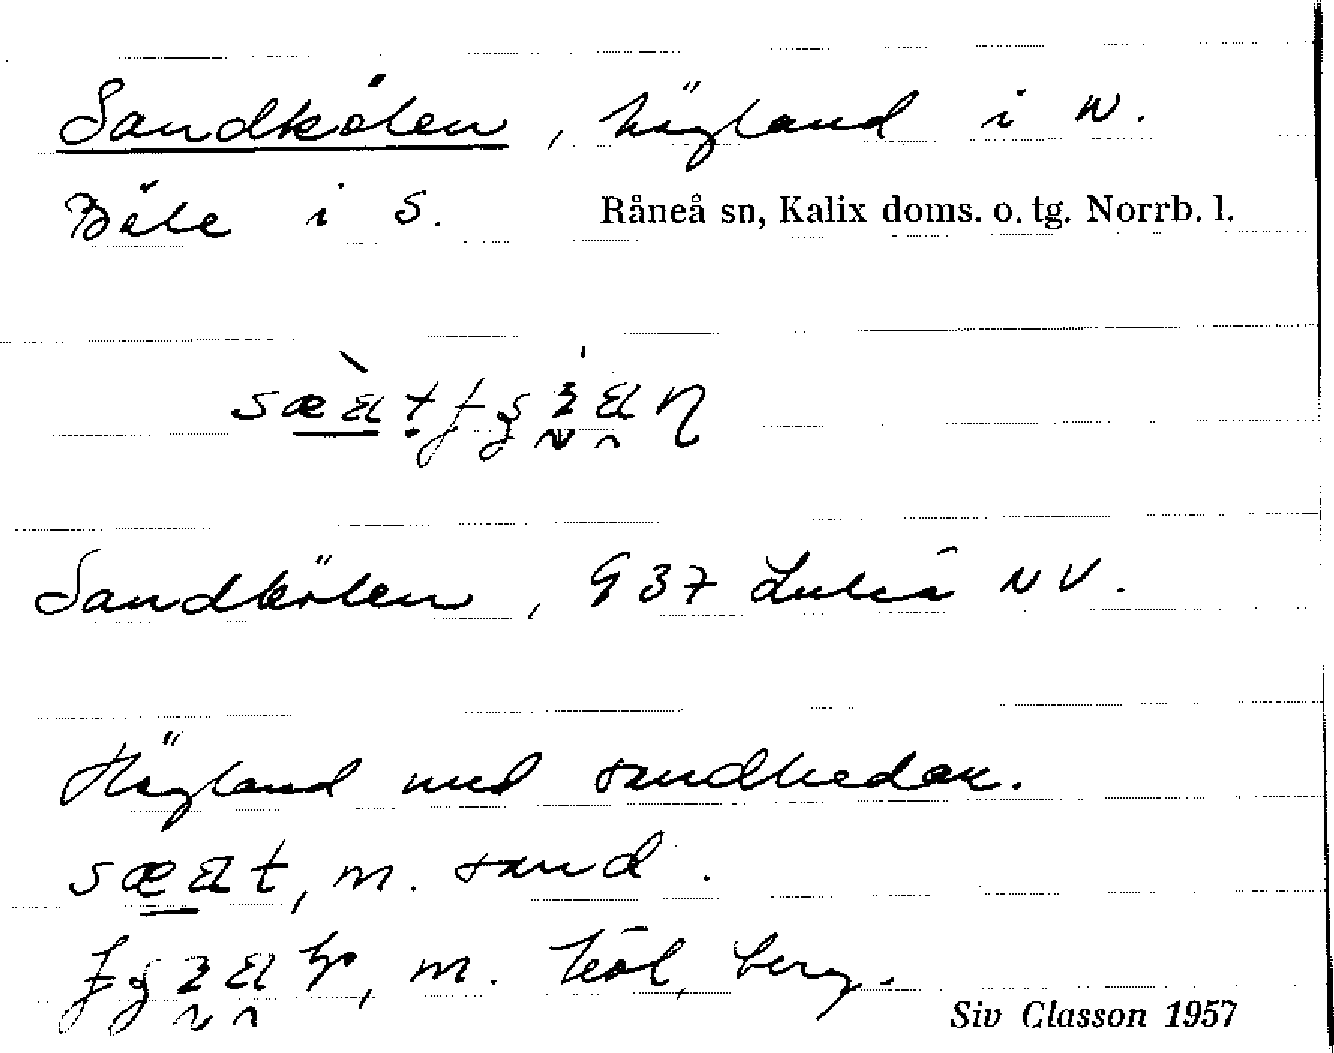 Sandkölen, högland i N.
Böle i S. Råneå sn, Kalix doms. o. tg. Norrb. l.
Sandkölen, 937 Luleå NV.
Högland med sandhedar.
m. sand.
m. köl, berg.
Siv Classon 1957